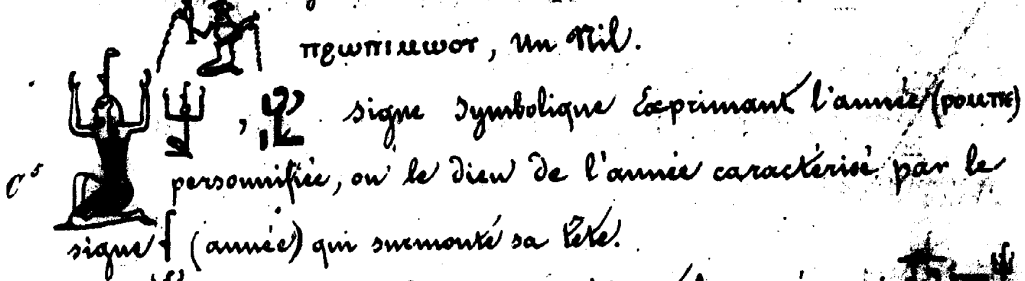 , un Nil.
, signe symbolique Exprimant l'année (ⲣⲟⲙⲡⲉ)
C⁵ personnifiée, ou le dieu de l'année caractérisé par le
signe (année) qui surmonte sa tête.